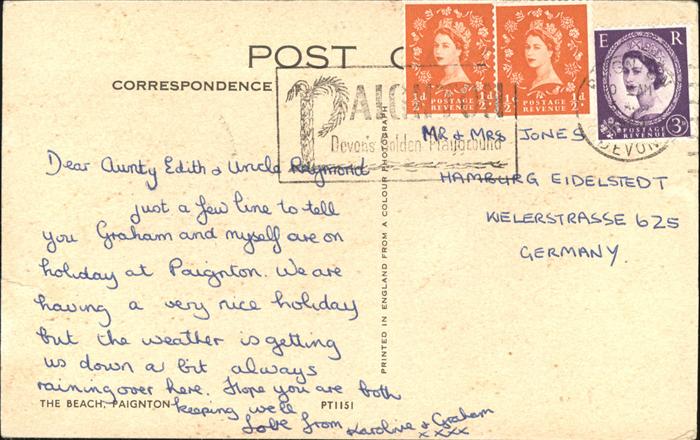 POST C
CORRESPONDENCE
½d ½d
POSTAGE REVENUE
½d ½d
POSTAGE REVENUE
E R
POSTAGE REVENUE 3D
PAIGNTON
Devon's Golden Playground
DEVON
MR & MRS JONES
HAMBURG EIDELSTEDT
WELERSTRASSE 625
GERMANY.
Dear Aunty Edith & Uncle Raymond
just a few line to tell
you Graham and myself are on
holiday at Paignton. We are
having a very nice holiday
but the weather is getting
us down a bit always
raining over here. Hope you are both
keeping well
Love from Karoline & Graham
xxxx
THE BEACH, PAIGNTON PT1151
PRINTED IN ENGLAND FROM A COLOUR PHOTOGRAPH